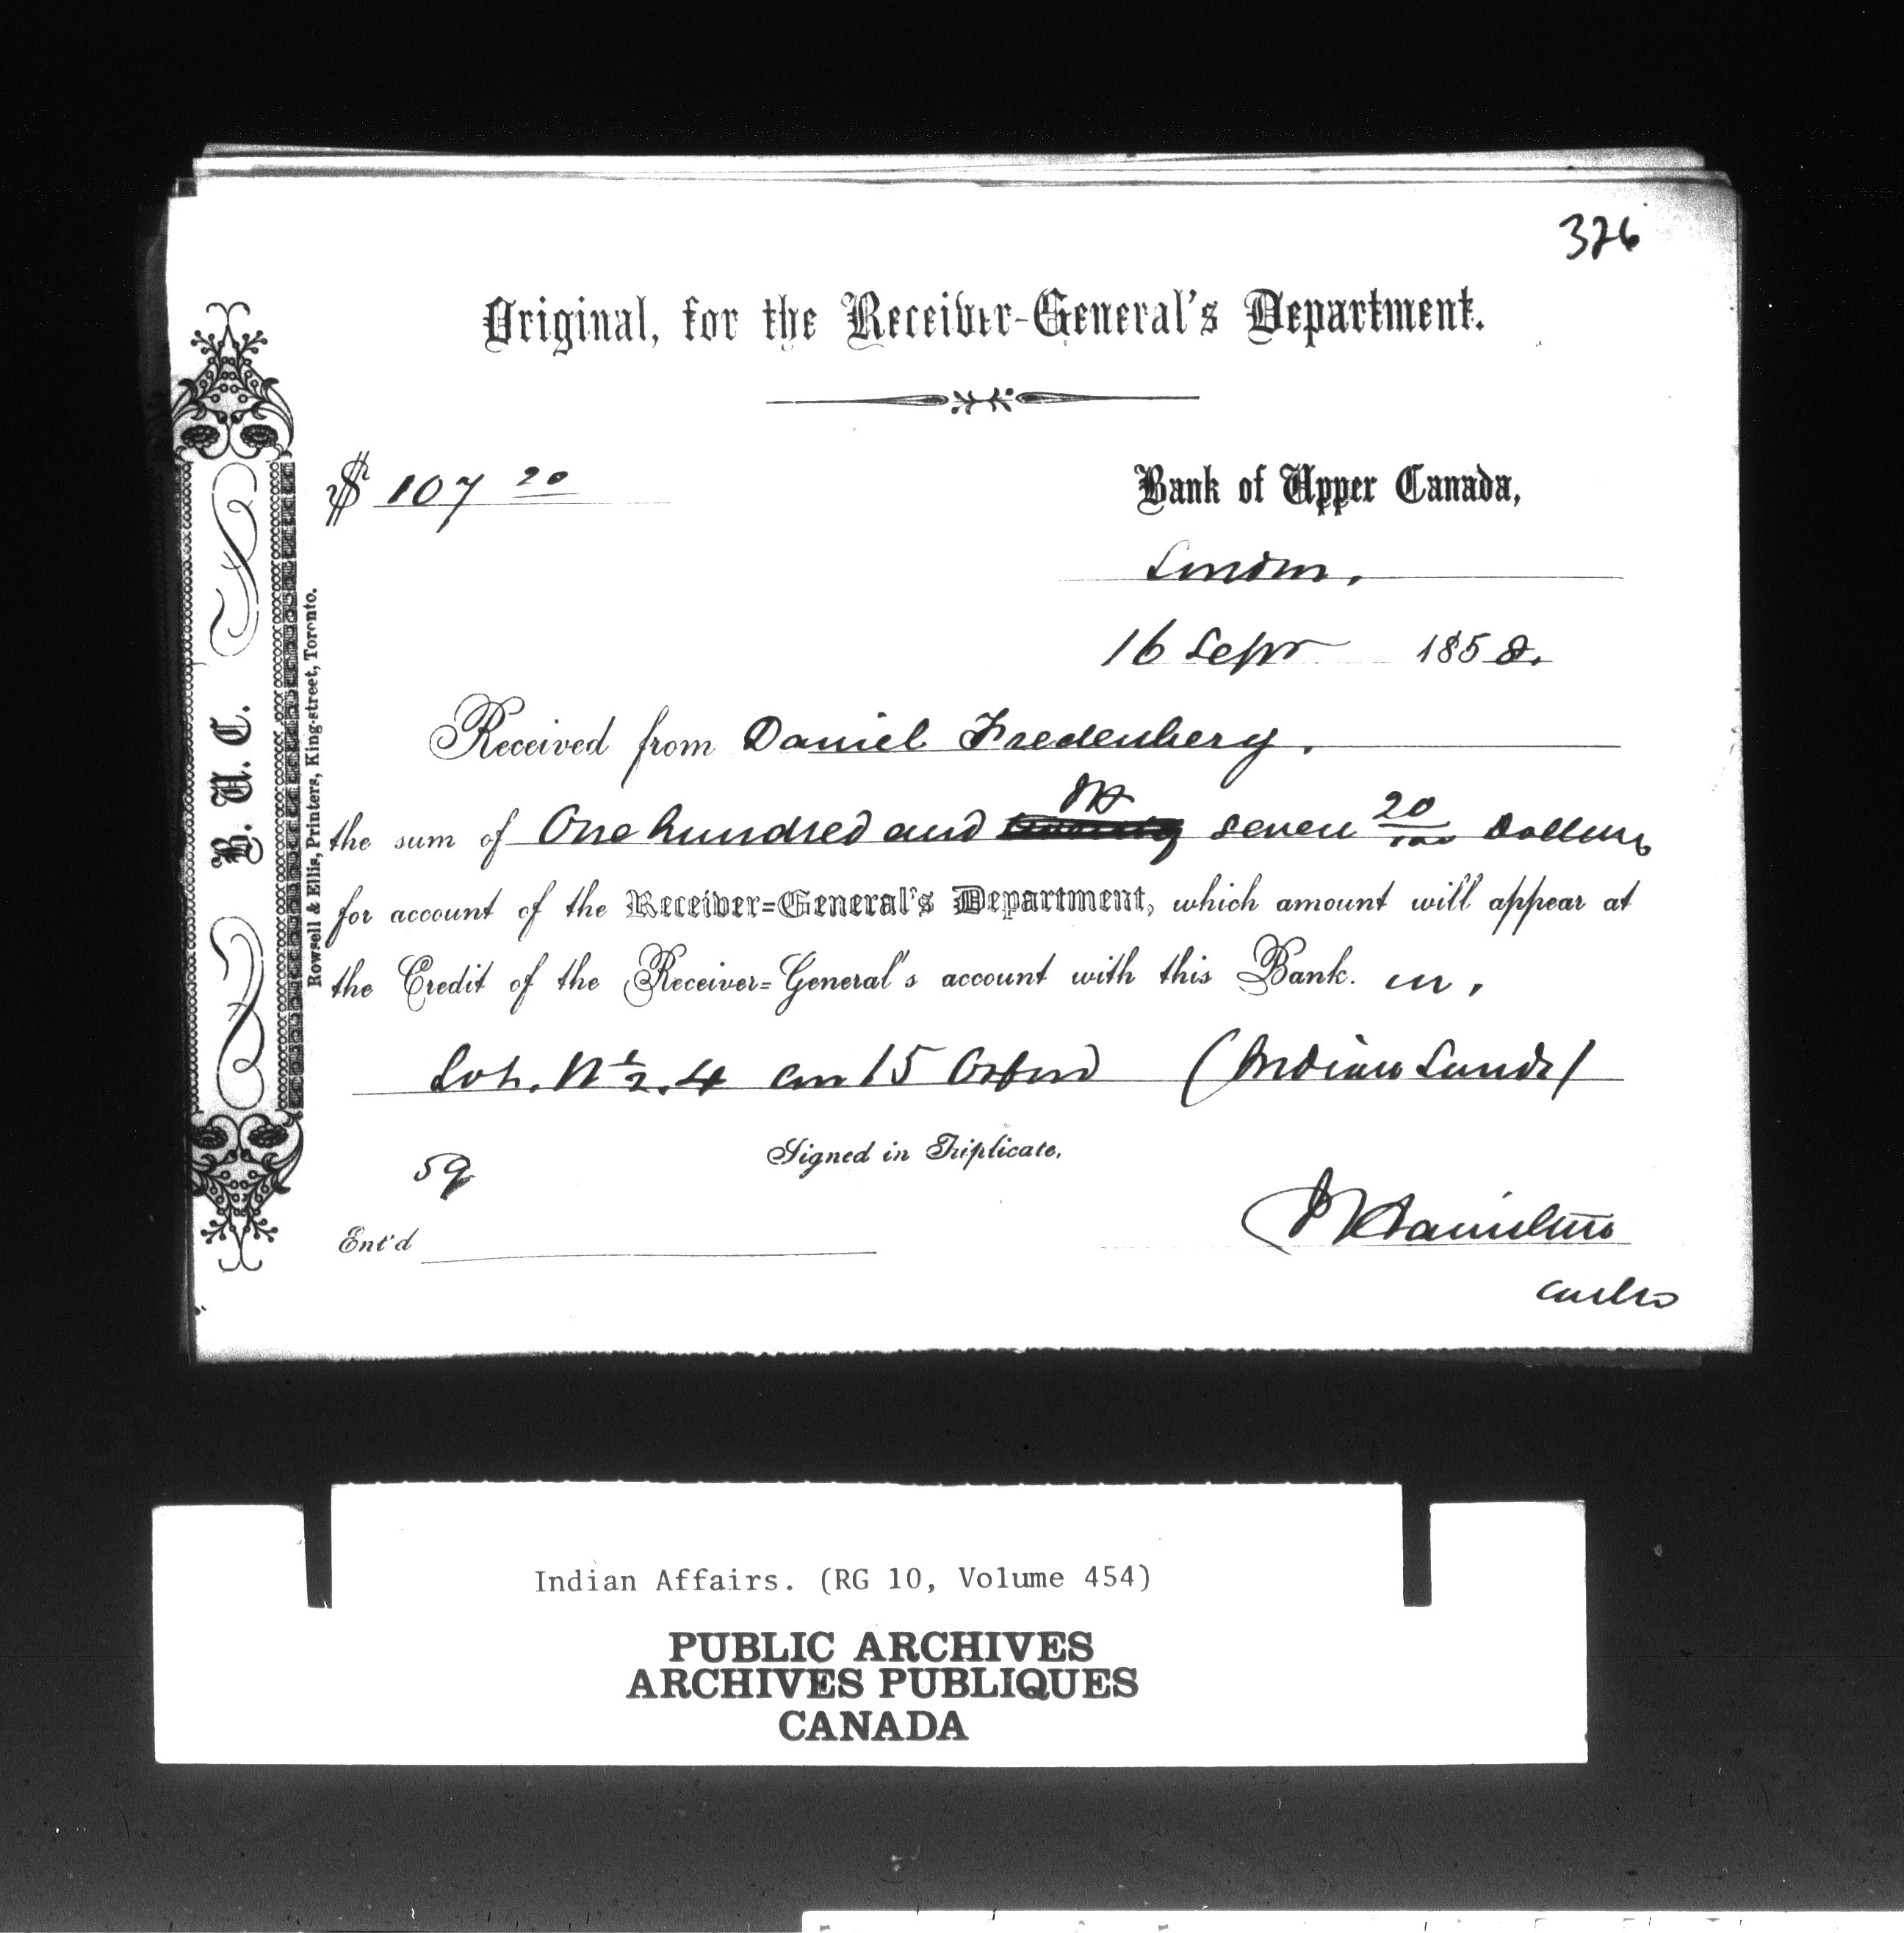 326
Original, for the Receiver-General's Department.
$ 107 20
Bank of Upper Canada,
London,
16 Sepr 1858.
Received from Daniel Fredenberg.
the sum of One hundred and seven 20/100 Dollars
for account of the Receiver=General's Department, which amount will appear at
the Credit of the Receiver=General's account with this Bank. on,
Lot. N ½. 4 con 15 Oxford (Indian Lands)
59
Signed in Triplicate,
Ent'd
Hamilton
B. U. C.
Rowsell & Ellis, Printers, King-street, Toronto.
Indian Affairs. (RG 10, Volume 454)
PUBLIC ARCHIVES
ARCHIVES PUBLIQUES
CANADA